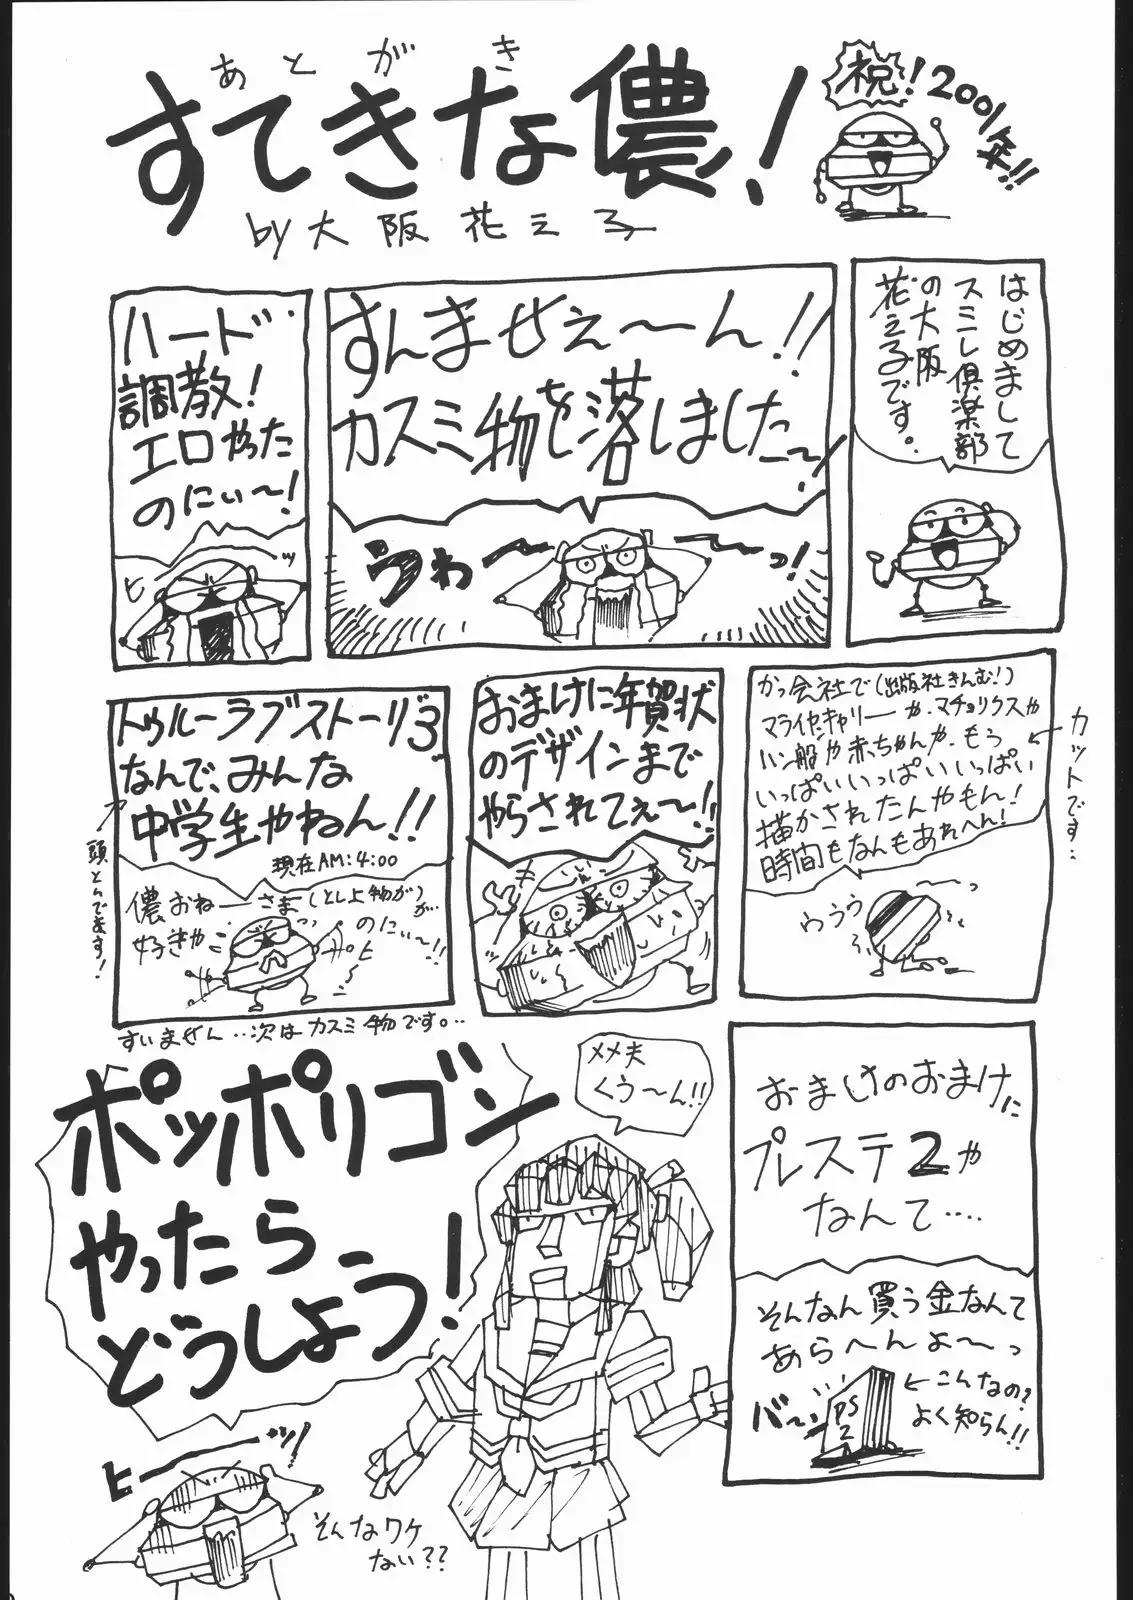 あとがき
すてきな儂!
by大阪花え子
祝!2001年!!
はじめまして
スミレ倶楽部
の大阪
花え子です。
すんませぇ〜ん!!
カスミ物を落しました〜!
うわ〜〜っ!
ハード
調教!
エロやった
のにぃ〜!
ヒーッ
かっ会社で(出版社きんむ!)
マライヤ・キャリーや、マチョリクスや
ハン船や赤ちゃんや、もう
いっぱいいっぱいいっぱい
描かされたんやもん!
時間もなんもあれへん!
カットです‥
〜っ
ウゥゥゥ
おまけに年賀状
のデザインまで
やらされてぇ〜!!
トゥルーラブストーリー3
なんで、みんな
中学生やねん!!
現在AM:4:00
儂おねーさま(とし上物が)が‥
好きやっっのにぃ〜!!
ヒーッ
頭とんでます!
すいません‥次はカスミ物です。‥
おまけのおまけに
プレステ2や
なんて‥‥
そんなん買う金なんて
あら〜んょ〜っ
バーン
PS
2
←こんなの?
よく知らん!!
メメ夫
くぅ〜ん!!
ポッポリゴン
やったら
どうしよう!
ヒーーッ!
そんなワケ
ない??